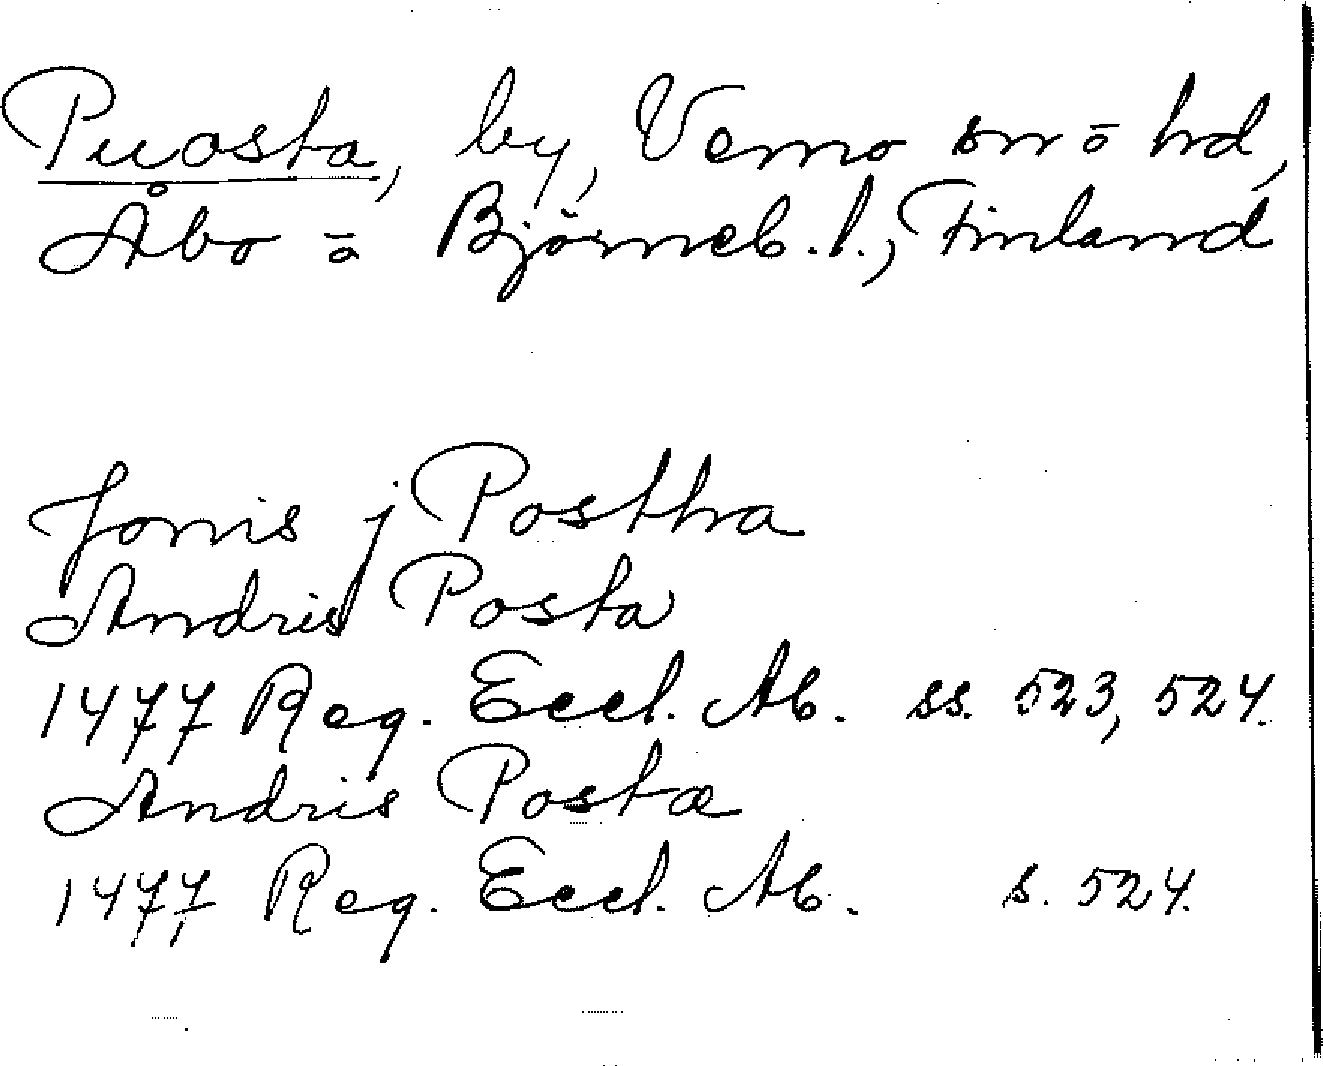 Puosta, by, Vemo sn o hd,
Åbo o Björneb. l., Finland
Jonis j Postha
Andris Posta
1477 Reg. Eccl. Ab. ss. 523, 524.
Andris Postæ
1477 Reg. Eccl. Ab. s. 524.